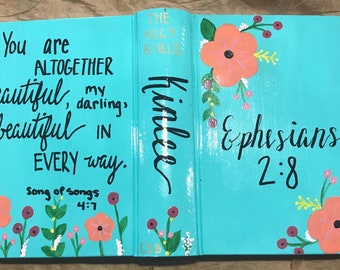 You are
ALTOGETHER
beautiful, my
darling,
beautiful IN
EVERY way.
Song of Songs
4:7
THE HOLY
BIBLE
Kinlee
CSB
Ephesians
2:8